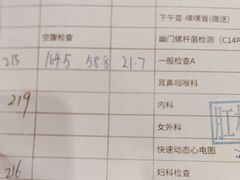 下午查-噗噗管(赠送)
空腹检查 幽门螺杆菌检测(C14
213 164.5 58.8 21.7 一般检查A
耳鼻咽喉科
219 内科
女外科
快速动态心电图
216 妇科检查